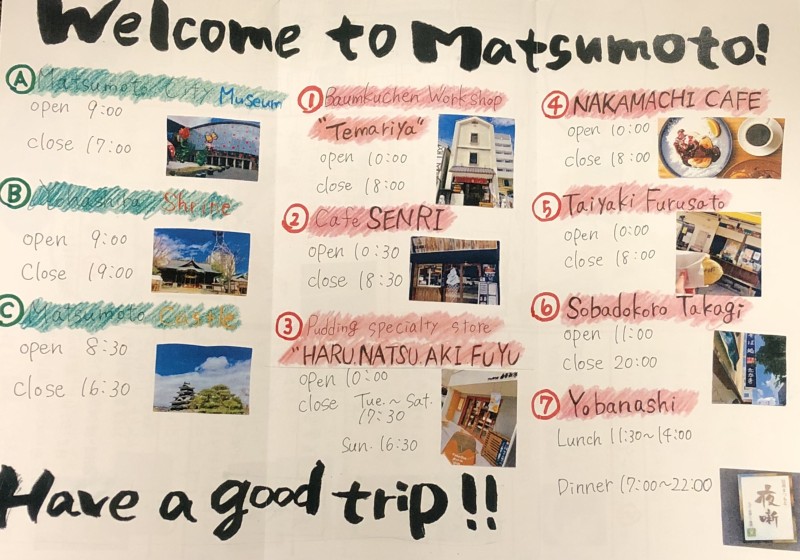 Welcome to Matsumoto!
A Matsumoto City Museum
open 9:00
close 17:00
B Yohashira Shrine
open 9:00
Close 19:00
C Matsumoto Castle
open 8:30
close 16:30
1 Baumkuchen Workshop
"Temariya"
open 10:00
close 18:00
2 Cafe SENRI
open 10:30
close 18:30
3 Pudding specialty store
"HARU.NATSU.AKI FUYU
open 10:00
close Tue.~Sat.
17:30
Sun. 16:30
4 NAKAMACHI CAFE
open 10:00
close 18:00
5 Taiyaki Furusato
open 10:00
close 18:00
6 Sobadokoro Takagi
open 11:00
close 20:00
7 Yobanashi
Lunch 11:30~14:00
Dinner 17:00~22:00
夜噺
Have a good trip!!